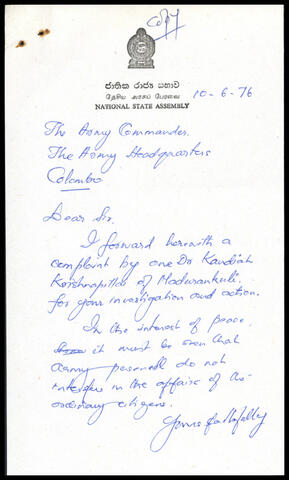 Copy
ජාතික රාජ්‍ය සභාව
தேசிய அரசுப் பேரவை
NATIONAL STATE ASSEMBLY
10-6-76
The Army Commander.
The Army Headquarters
Colombo
Dear Sir.
I forward herewith a
complaint by one Dr Kandiah
Krishnapillai of Madurankuli.
for your investigation and action.
In the interest of peace
it must be seen that
army personell do not
interfere in the affairs of the
ordinary citizens.
Yours faithfully